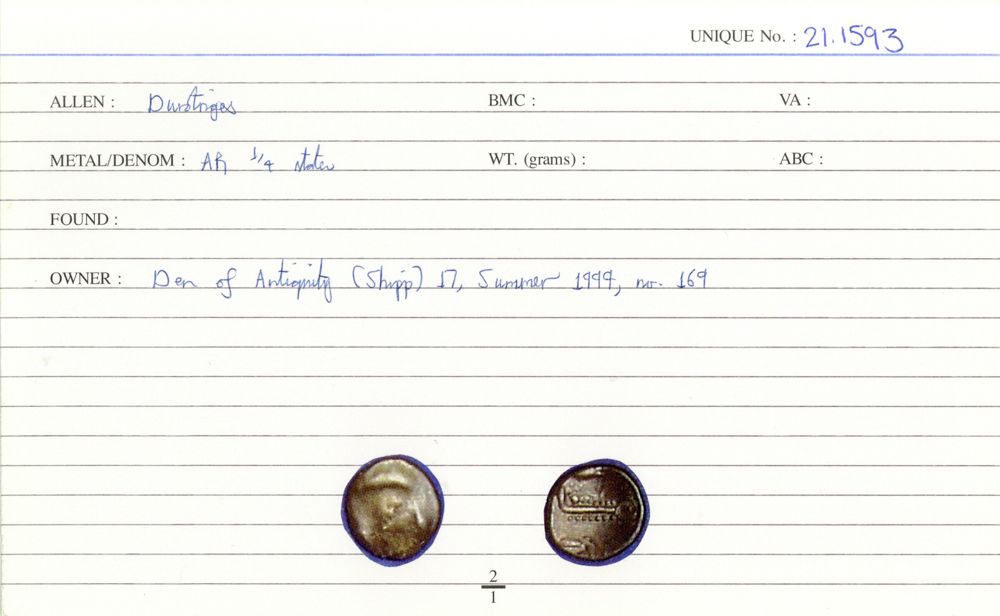 UNIQUE No. : 21.1593
ALLEN : Durotriges BMC : VA :
METAL/DENOM : AR 1/4 stater WT. (grams) : ABC :
FOUND :
OWNER : Den of Antiquity (Shipp) 17, Summer 1999, no. 169
2
1